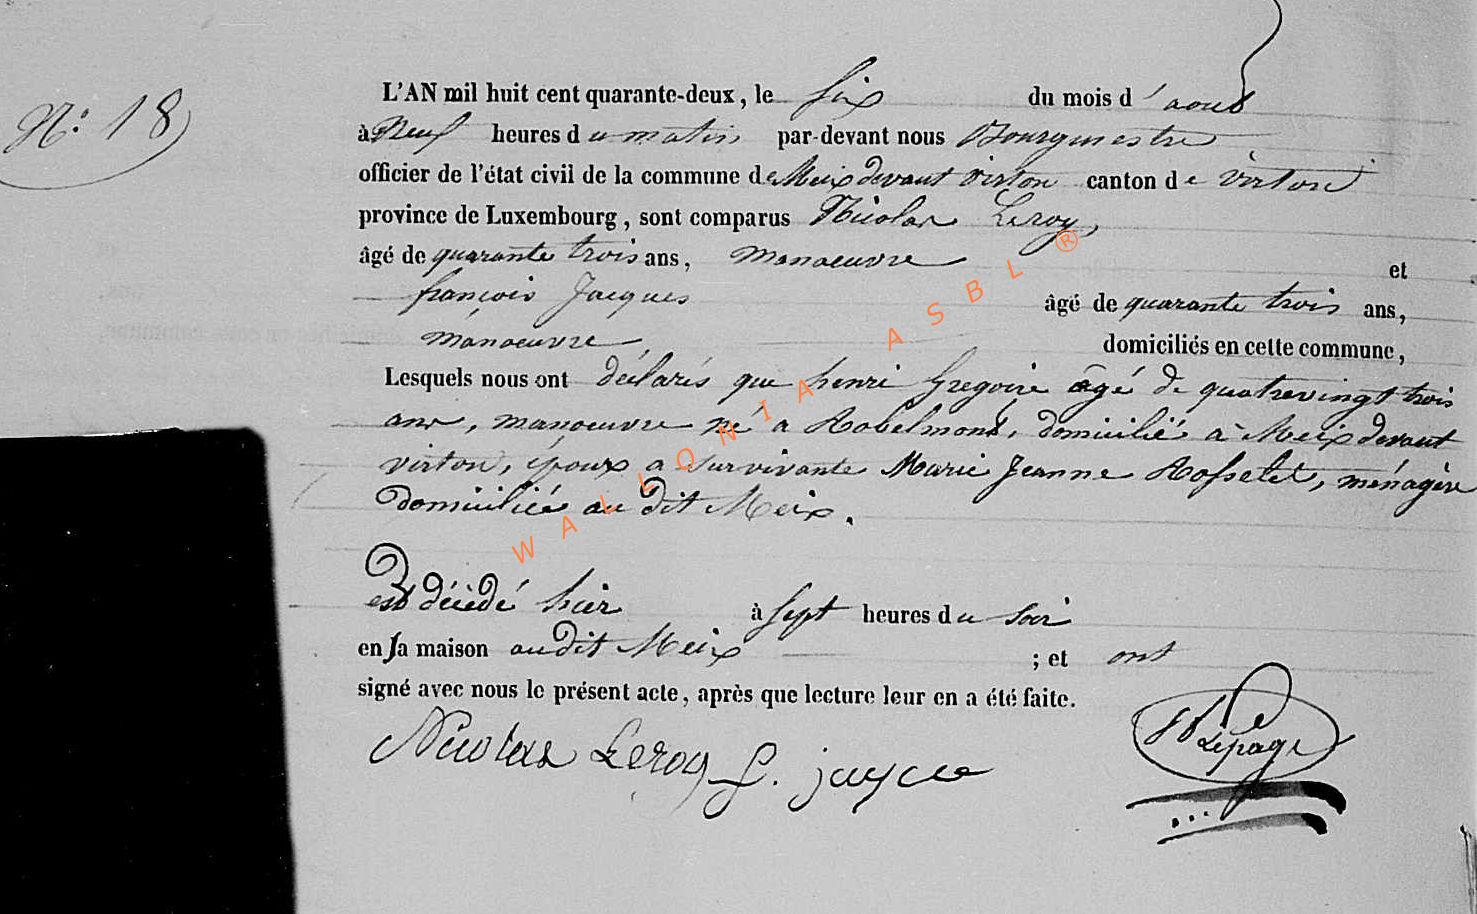 N.º 18
L'AN mil huit cent quarante-deux, le six du mois d'aout
à Neuf heures du matin par-devant nous Bourgmestre
officier de l'état civil de la commune de Meix devant virton canton de virton
province de Luxembourg, sont comparus Nicolas Leroy,
âgé de quarante trois ans, manoeuvre et
françois Jacques âgé de quarante trois ans,
manoeuvre, domiciliés en cette commune,
Lesquels nous ont déclarés que henri Gregoire âgé de quatrevingt trois
ans, manoeuvre né a Robelmont, domicilié à Meix devant
virton, époux a survivante Marie Jeanne Rosselet, ménagère
domiciliée au dit Meix.
est décédé hier à sept heures du soir
en sa maison audit Meix ; et ont
signé avec nous le présent acte, après que lecture leur en a été faite.
Nicolas Leroy f. jacque
Lepage
WALLONIA ASBL ®